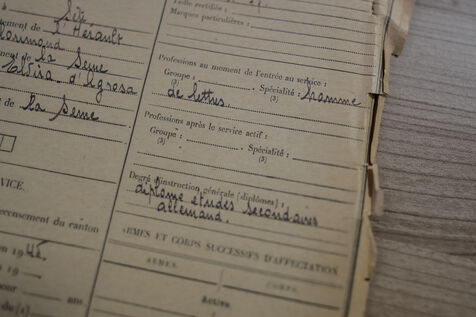 Sète
l'Hérault
la Seine
Elvira d'Agrosa
la Seine
VICE.
recensement du canton
en 1945.
en 19
ans
Taille rectifiée :
Marques particulières :
Professions au moment de l'entrée au service :
Groupe : Spécialité : homme
(3) (3)
de lettres.
Professions après le service actif :
Groupe : Spécialité :
(3) (3)
Degré d'instruction générale (diplômes) :
diplôme études secondaires
allemand.
ARMES ET CORPS SUCCESSIFS D'AFFECTATION
ARMES. CORPS.
Active